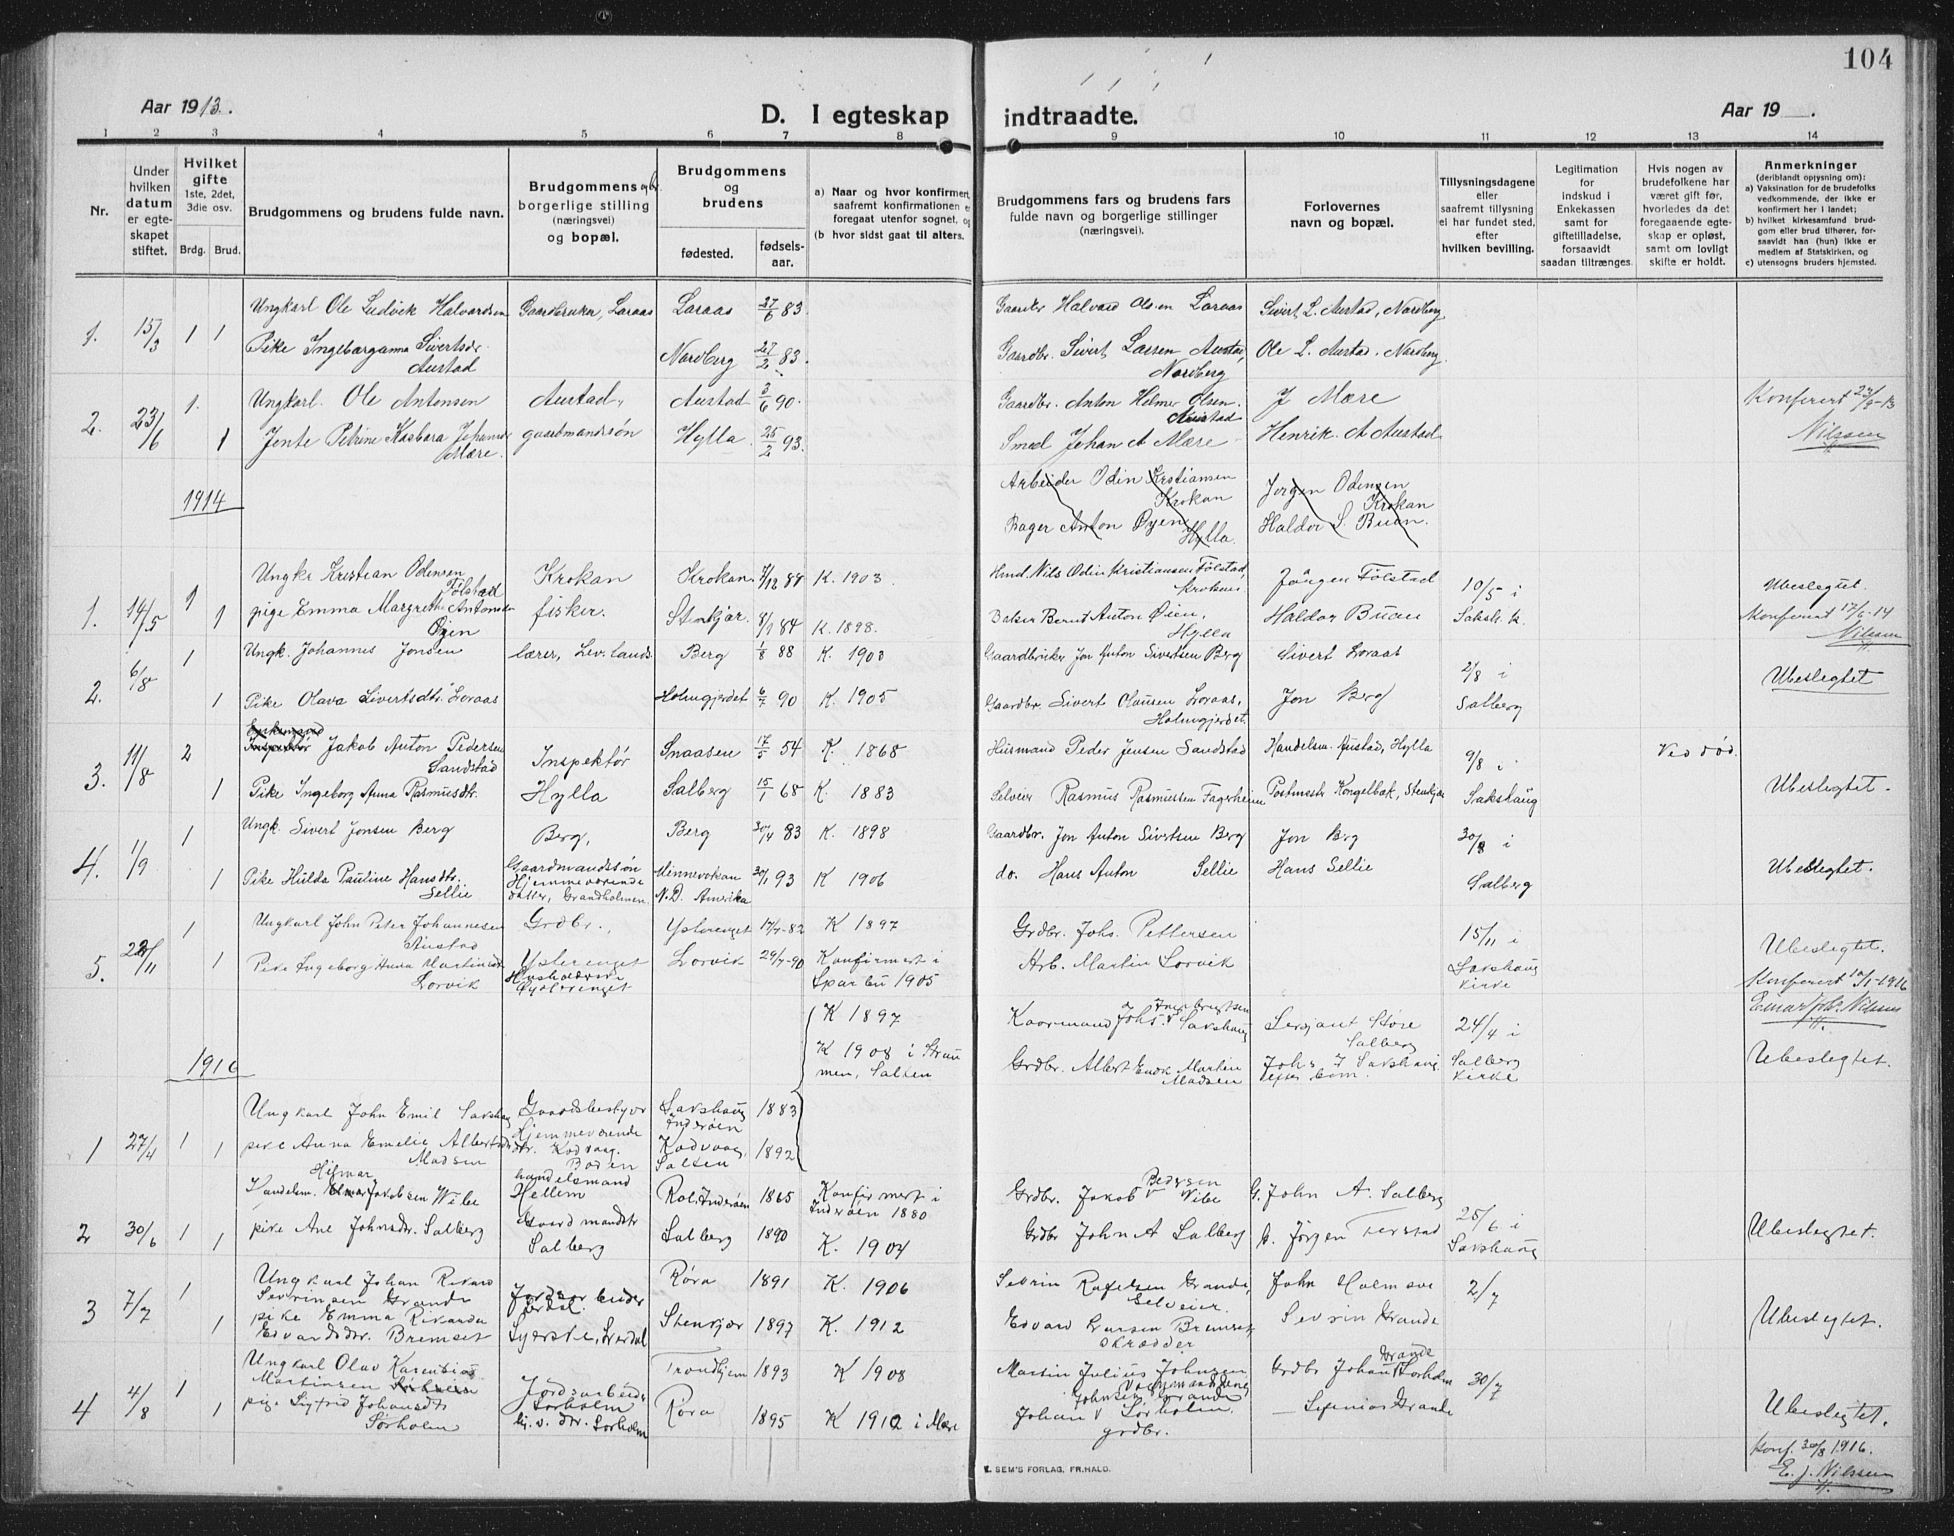 104
Aar 1913.
D. I egteskap indtraadte.
Aar 19 .
1 2 3 4 5 6 7 8 9 10 11 12 13 14
Nr.
Under hvilken datum er egteskapet stiftet.
Hvilket gifte
1ste, 2det, 3die osv.
Brdg. Brud.
Brudgommens og brudens fulde navn.
Brudgommens og br.
borgerlige stilling
(næringsvei)
og bopæl.
Brudgommens og brudens
fødested.
fødselsaar.
a) Naar og hvor konfirmert,
saafremt konfirmationen e
foregaat utenfor sognet, og
(b hvor sidst gaat til alters.
Brudgommens fars og brudens fars
fulde navn og borgerlige stillinger
(næringsvei).
Forlovernes
navn og bopæl.
Tillysningsdagene
eller
saafremt tillysning
ei har fundet sted,
efter
hvilken bevilling.
Legitimation
for
indskud i
Enkekassen
samt for
giftetilladelse,
forsaavidt
saadan tiltrænges.
Hvis nogen av
brudefolkene har
været gift før,
hvorledes da det
foregaaende egteskap er opløst,
samt om lovligt
skifte er holdt.
Anmerkninger
(deriblandt opysning om):
a) Vaksination for de brudefolks
vedkommende, der ikke er
konfirmert her i landet;
b) hvilket kirkesamfund brudgom eller brud tilhører, forsaavidt haa (hun) ikke er
medlem af Statskirken, og
c) utensogns bruders hjemsted.
1. 15/3 1 1 Ungkarl Ole Ludvik Halvardsen Gaardbruker, Laraas Laraas 27/6 83 Gaardbr Halvard Olsen Loraas Sivert L. Austad, Nordberg
Pike Ingebørganna Sivertsdr. Austad Nordberg 27/2 83. Gaardbr. Sivert Lassen Austad, Nordberg Ole L. Austad, Nordberg.
2. 23/6 1. Ungkarl. Ole Antonsen Austad, Austad 3/6 90. Gaardbr. Anton Helmer Olsen. Austad J Mære Konferert 27/9-13
1 Jente Petrine Kasbara Johansdr Mære. gaardmandssøn Hylla 25/2 93. Smed Johan A Mære Henrik A Austad Nilssen
1914
Arbeider Odin Kristiansen Krokan Jørgen Odensen Krokan
Bager Anton Øyen Hylla. Haldor S. Buan.
1. 14/5 1 Ungkr Kristian Odensen Følstad Krokan Krokan 7/12 88 K. 1903. Hmd. Nils Odin Kristiansen Følstad, Krokan. Jörgen Følstad 10/5 i Ubeslegtet.
1 pige Emma Margrethe Antonsdr Øyen fisker. Stenkjær. 8/9 84 K. 1898. Baker Bernt Anton Øien, Hylla Haldor Buan Saksh. k. Konferert 17/6-14 Nilssen
2. 6/8 1 Ungk. Johannes Jonsen lærer, Lev. lands. Berg 1/8 88 K. 1903 Gaardbruker Jon Anton Sivertsen Berg Sivert Loraas 2/8 i Ubeslegtet
1 Pike Olava Sivertsdtr. Loraas Holmgjerdet 6/7 90 K. 1905 Gaardbr. Sivert Olausen Loraas, Holmgjerdet. Jon Berg Salberg
3. 11/8 2 Jakob Anton Pedersen Sandstad Inspektör Snaasen 17/5 54 K. 1868 Husmand Peder Jensen Sandstad Handelsm. Austad, Hylla 9/8 i Ved död.
1 Pike Ingeborg Anna Rasmusdtr. Hylla Salberg 15/1 68 K. 1883 Selveier Rasmus Rasmussen Fagerheim Postmester Kongelbæk, Stenkjær Sakshaug Ubeslegtet.
4. 1/9 1 Ungk. Sivert Jonsen Berg Berg, Berg 30/4 83 K. 1898 Gaardbr. Jon Anton Sivertsen Berg Jon Berg 30/8 i
1 Pike Hulda Pauline Hansdtr. Sellie Gaardmandssön Hjemmeværende datter, Grandholmen. Minnevokan N.D. Amerika 30/1 93 K 1906 do. Hans Anton Sellie Hans Sellie Salberg Ubeslegtet
5. 22/11 1 Ungkarl John Peter Johannesen Austad Grdbr., Ysterenget 17/7-82 K 1897 Grdbr. Johs. Pettersen 15/11 i
1 Pike Ingeborg Anna Martinsdr Lorvik Ysterenget Lorvik 29/7-90 Konfirmert i Sparbu 1905 Arb. Martin Lorvik Sakshaug kirke Ubeslegtet. Konferert 10/1-1916
K 1897 Kaarmand Johs Ingebrigtsen Sakshaug Sersjant Støre Salberg 24/4 i
1916 K 1908 i Straumen, Salten Grdbr. Albert Endr. Martin Madsen Johs J Sakshaug Salberg kirke Ubeslegtet.
1 27/4 1 Ungkarl John Emil Sakshaug Gaardsbestyrer Sakshaug Inderøen 1883
1 pike Anna Emelie Albertsdr Madsen Hjemmeværende dtr. Kodvaag. Boden Kodvaag Salten 1892
2 30/6 1 Handelsm. Hilmar Jakobsen Wibe handelsmand Hellem Rol. Inderøen 1865 Konfirmert i Inderøen 1880 Grdbr. Jakob Pedersen Vibe G. John A. Salberg 25/6 i
1 pike Ane Johnsdr. Salberg Gaardmandsdtr Salberg Salberg 1890 K. 1904 Grdbr John A Salberg Jørgen Sakshaug Ubeslegtet.
3 7/7 1 Ungkarl Johan Rikard Sevrinsen Grande Røra 1891 K. 1906 Sevrin Rafelsen Grande, Selveier. John Holmsve 2/7
1 pike Emma Rikarda Edvardsdr. Bremset Stenkjær 1897 K. 1912 Edvard Larsen Bremset skrædder Sevrin Grande Ubeslegtet.
4 4/8 1 Ungkarl Olav Karenbius Martinsen Jordsarbeider Trondhjem 1893 K 1908 Martin Julius Johnsen Grdbr Johan Grande Sorholm 30/7
1 pige Sigfrid Johansdtr Sørholm Sørholm Røra 1895 K 1910 i Mære Johan Johnsen Grande Sørholm. grdbr. Grande Ubeslegtet.
Konf. 30/8 1916.
E. J. Nilssen
E. SEM'S FORLAG, FR.HALD.